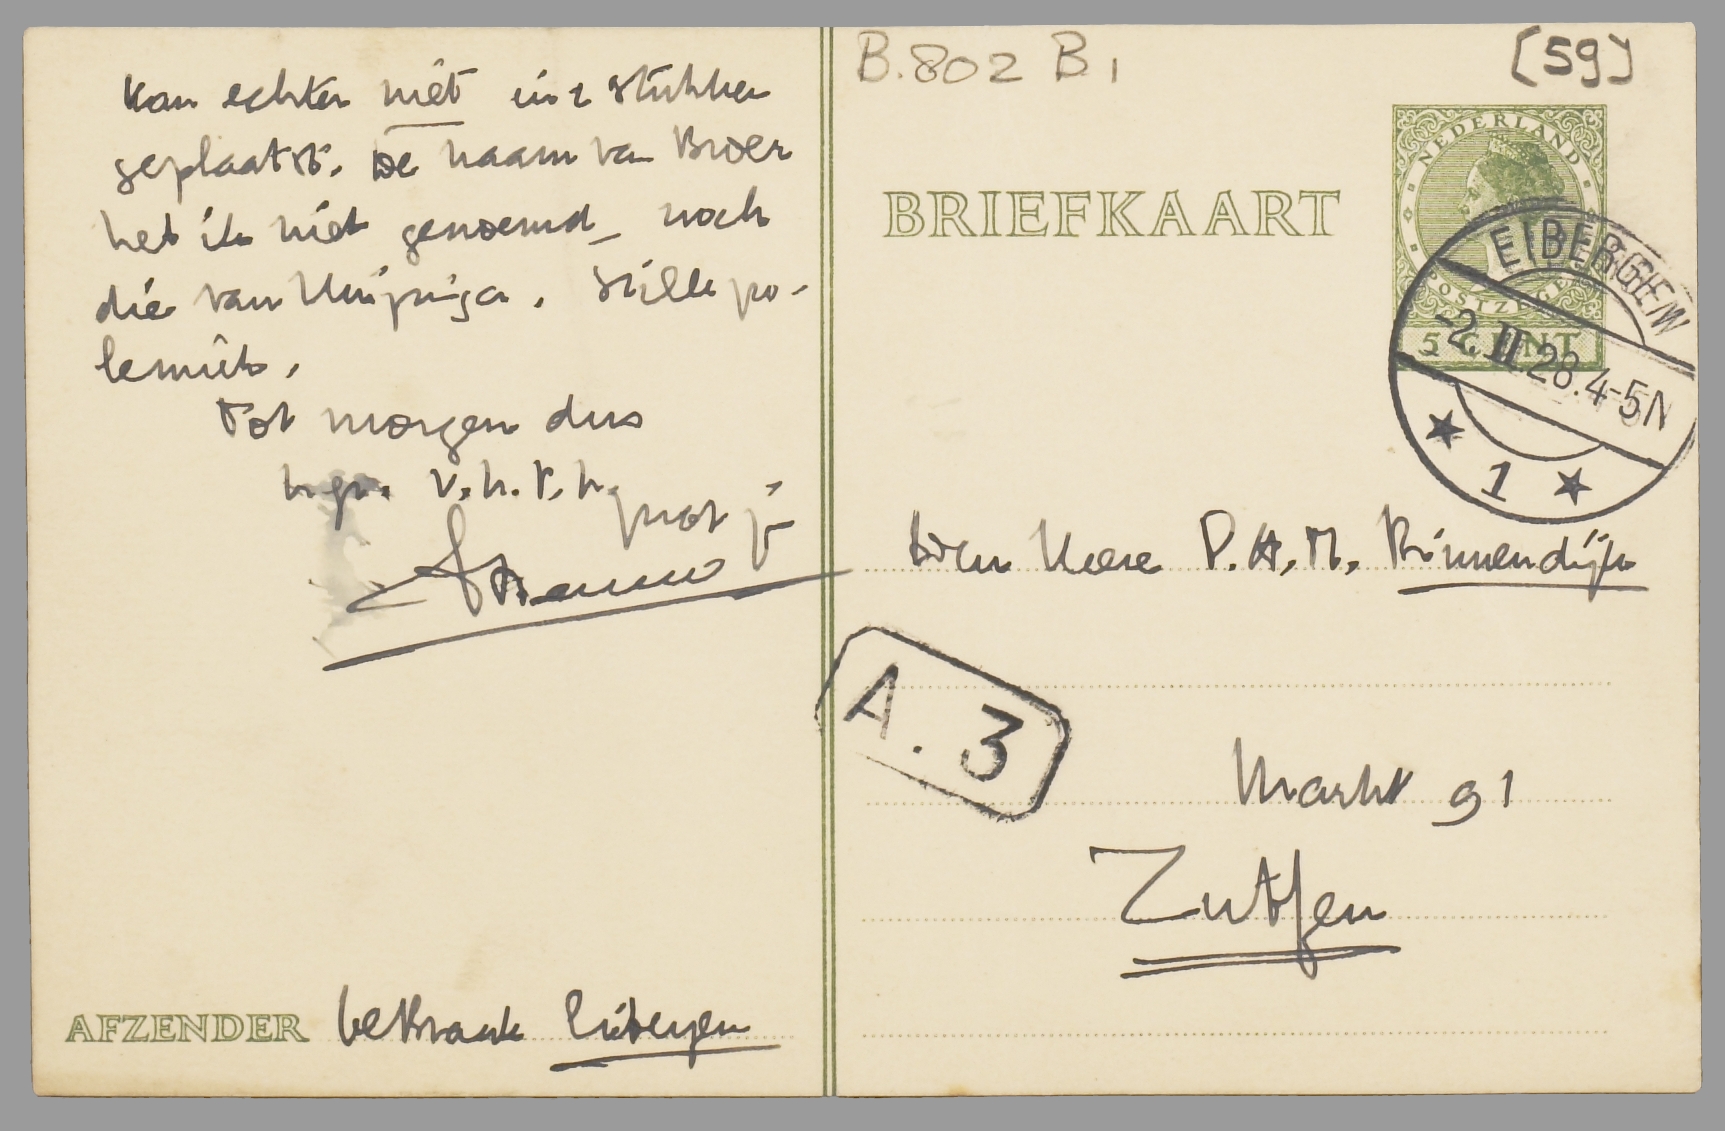 kan echter niet in 2 stukken
geplaatst. De naam van Broer
heb ik niet genoemd_ noch
die van Kuipinga. Stille po-
lemiek.
Tot morgen dus
h.gr. v.h.t.h.
Menno
AFZENDER terBraak Eibergen
B.802 B1
[59]
BRIEFKAART
NEDERLAND
POSTZEGEL
5 CENT
EIBERGEN
-2.II.28.4-5N
1
Den Heere P.A.M. Binnendijk
A.3
Markt 91
Zutfen